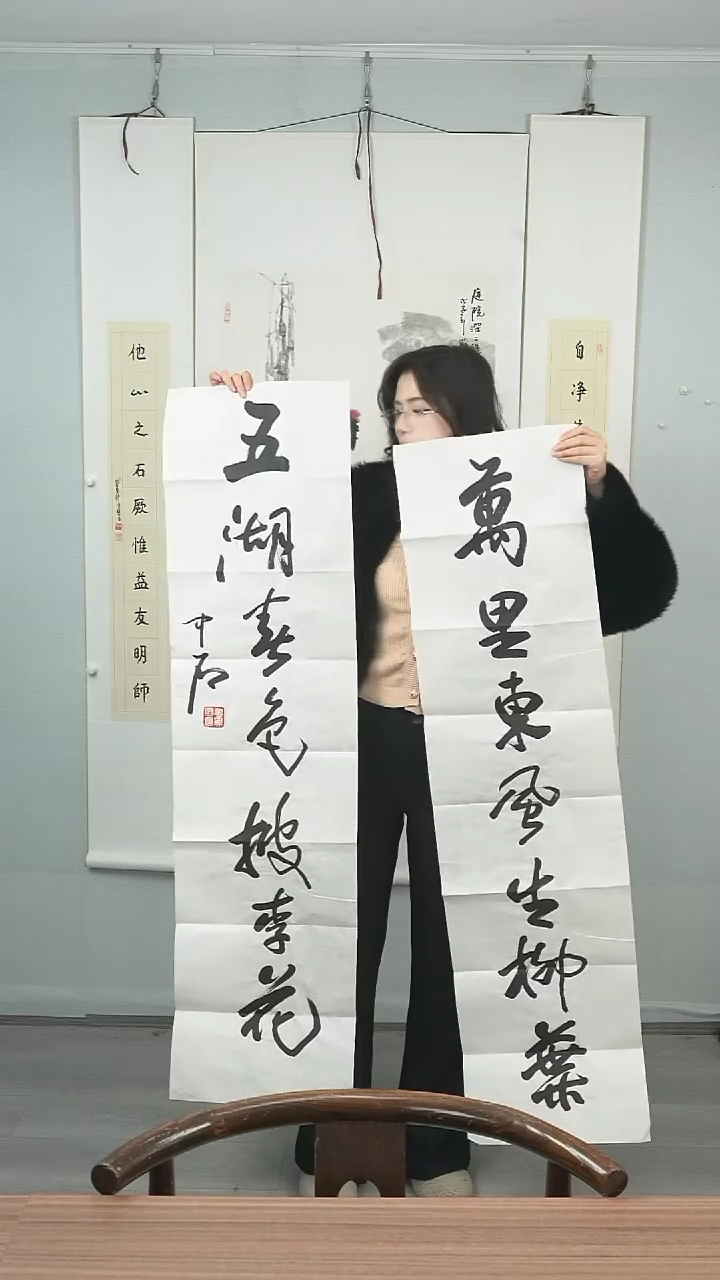 萬里東風生柳葉
五湖春色披李花
中石
自淨
庭院深
他山之石厥惟益友明師